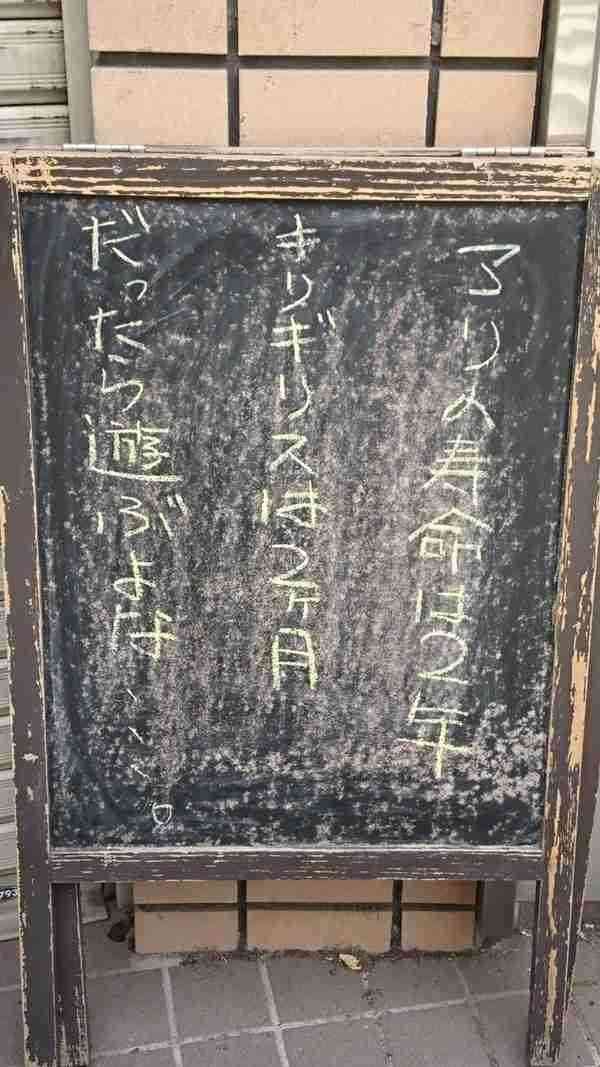 アリの寿命は2年
キリギリスは2ヶ月
だったら遊ぶよな、、、。
793